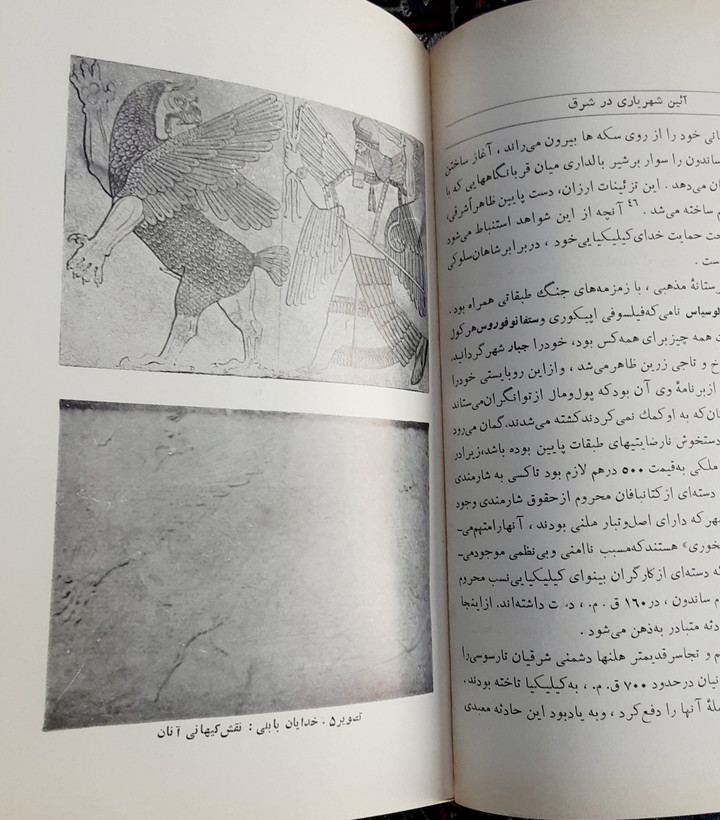 آئین شهریاری در شرق
انی خود را از روی سکه ها بیرون می‌راند ، آغاز ساختن
ساندون را سوار برشیر بالداری میان قربانگاههایی که با
ان می‌دهد . این تزئینات ارزان، دست پایین ظاهراً شرقی،
ساخته می‌شد . ٤٦ آنچه از این شواهد استنباط می‌شود
حت حمایت خدای کیلیکیایی خود ، در برابر شاهان سلوکی
است .
رستانهٔ مذهبی ، با زمزمه‌های جنگ طبقاتی همراه بود.
وسیاس نامی که فیلسوفی اپیکوری و ستفانوفوروس هرکول
همه چیز برای همه کس بود، خود را جبار شهر گردانید،
خ و تاجی زرین ظاهر می‌شد ، و از این رو بایستی خود را
از برنامهٔ وی آن بود که پول و مال از توانگران می‌ستاند
ان که به او کمك نمی‌کردند کشته می‌شدند. گمان می‌رود
دستخوش نارضایتیهای طبقات پایین بوده باشد، زیرا در
ملکی به‌قیمت ۵۰۰ درهم لازم بود تا کسی به شارمندی
دسته‌ای از کتانبافان محروم از حقوق شارمندی وجود
هر که دارای اصل و تبار هلنی بودند ، آنها را متهم می‌ـ
خوری» هستند که مسبب ناامنی و بی‌نظمی موجود می‌ـ
که دسته‌ای از کارگران بینوای کیلیکیایی نسب محروم
م ساندون ، در ۱۶۰ ق . م. ، داشته‌اند. از اینجا
دثه متبادر به‌ذهن می‌شود .
م و نجاسر قدیمتر هلنها دشمنی شرقیان تارسوسی را
نیان در حدود ۷۰۰ ق. م. ، به کیلیکیا تاخته بودند.
ملهٔ آنها را دفع کرد ، و به یادبود این حادثه معبدی
تصویر ۵ . خدایان بابلی : نقش کیهانی آنان